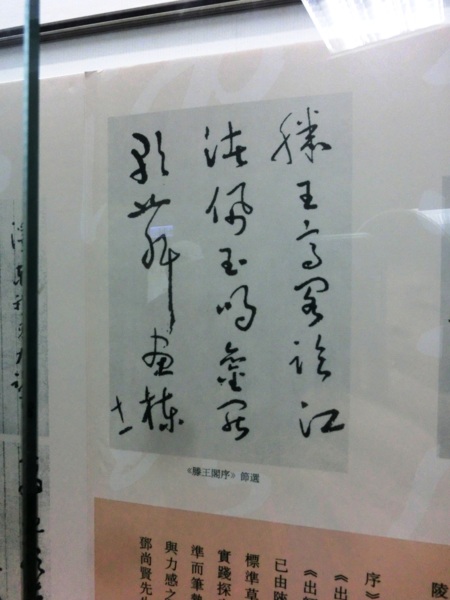 滕王高閣臨江
渚佩玉鳴鸞罷
歌舞畫棟
十一
《滕王閣序》節選
陵
序》
《出
《出
已由
標準草
實踐探
準而筆
與力感之
鄧尚賢先